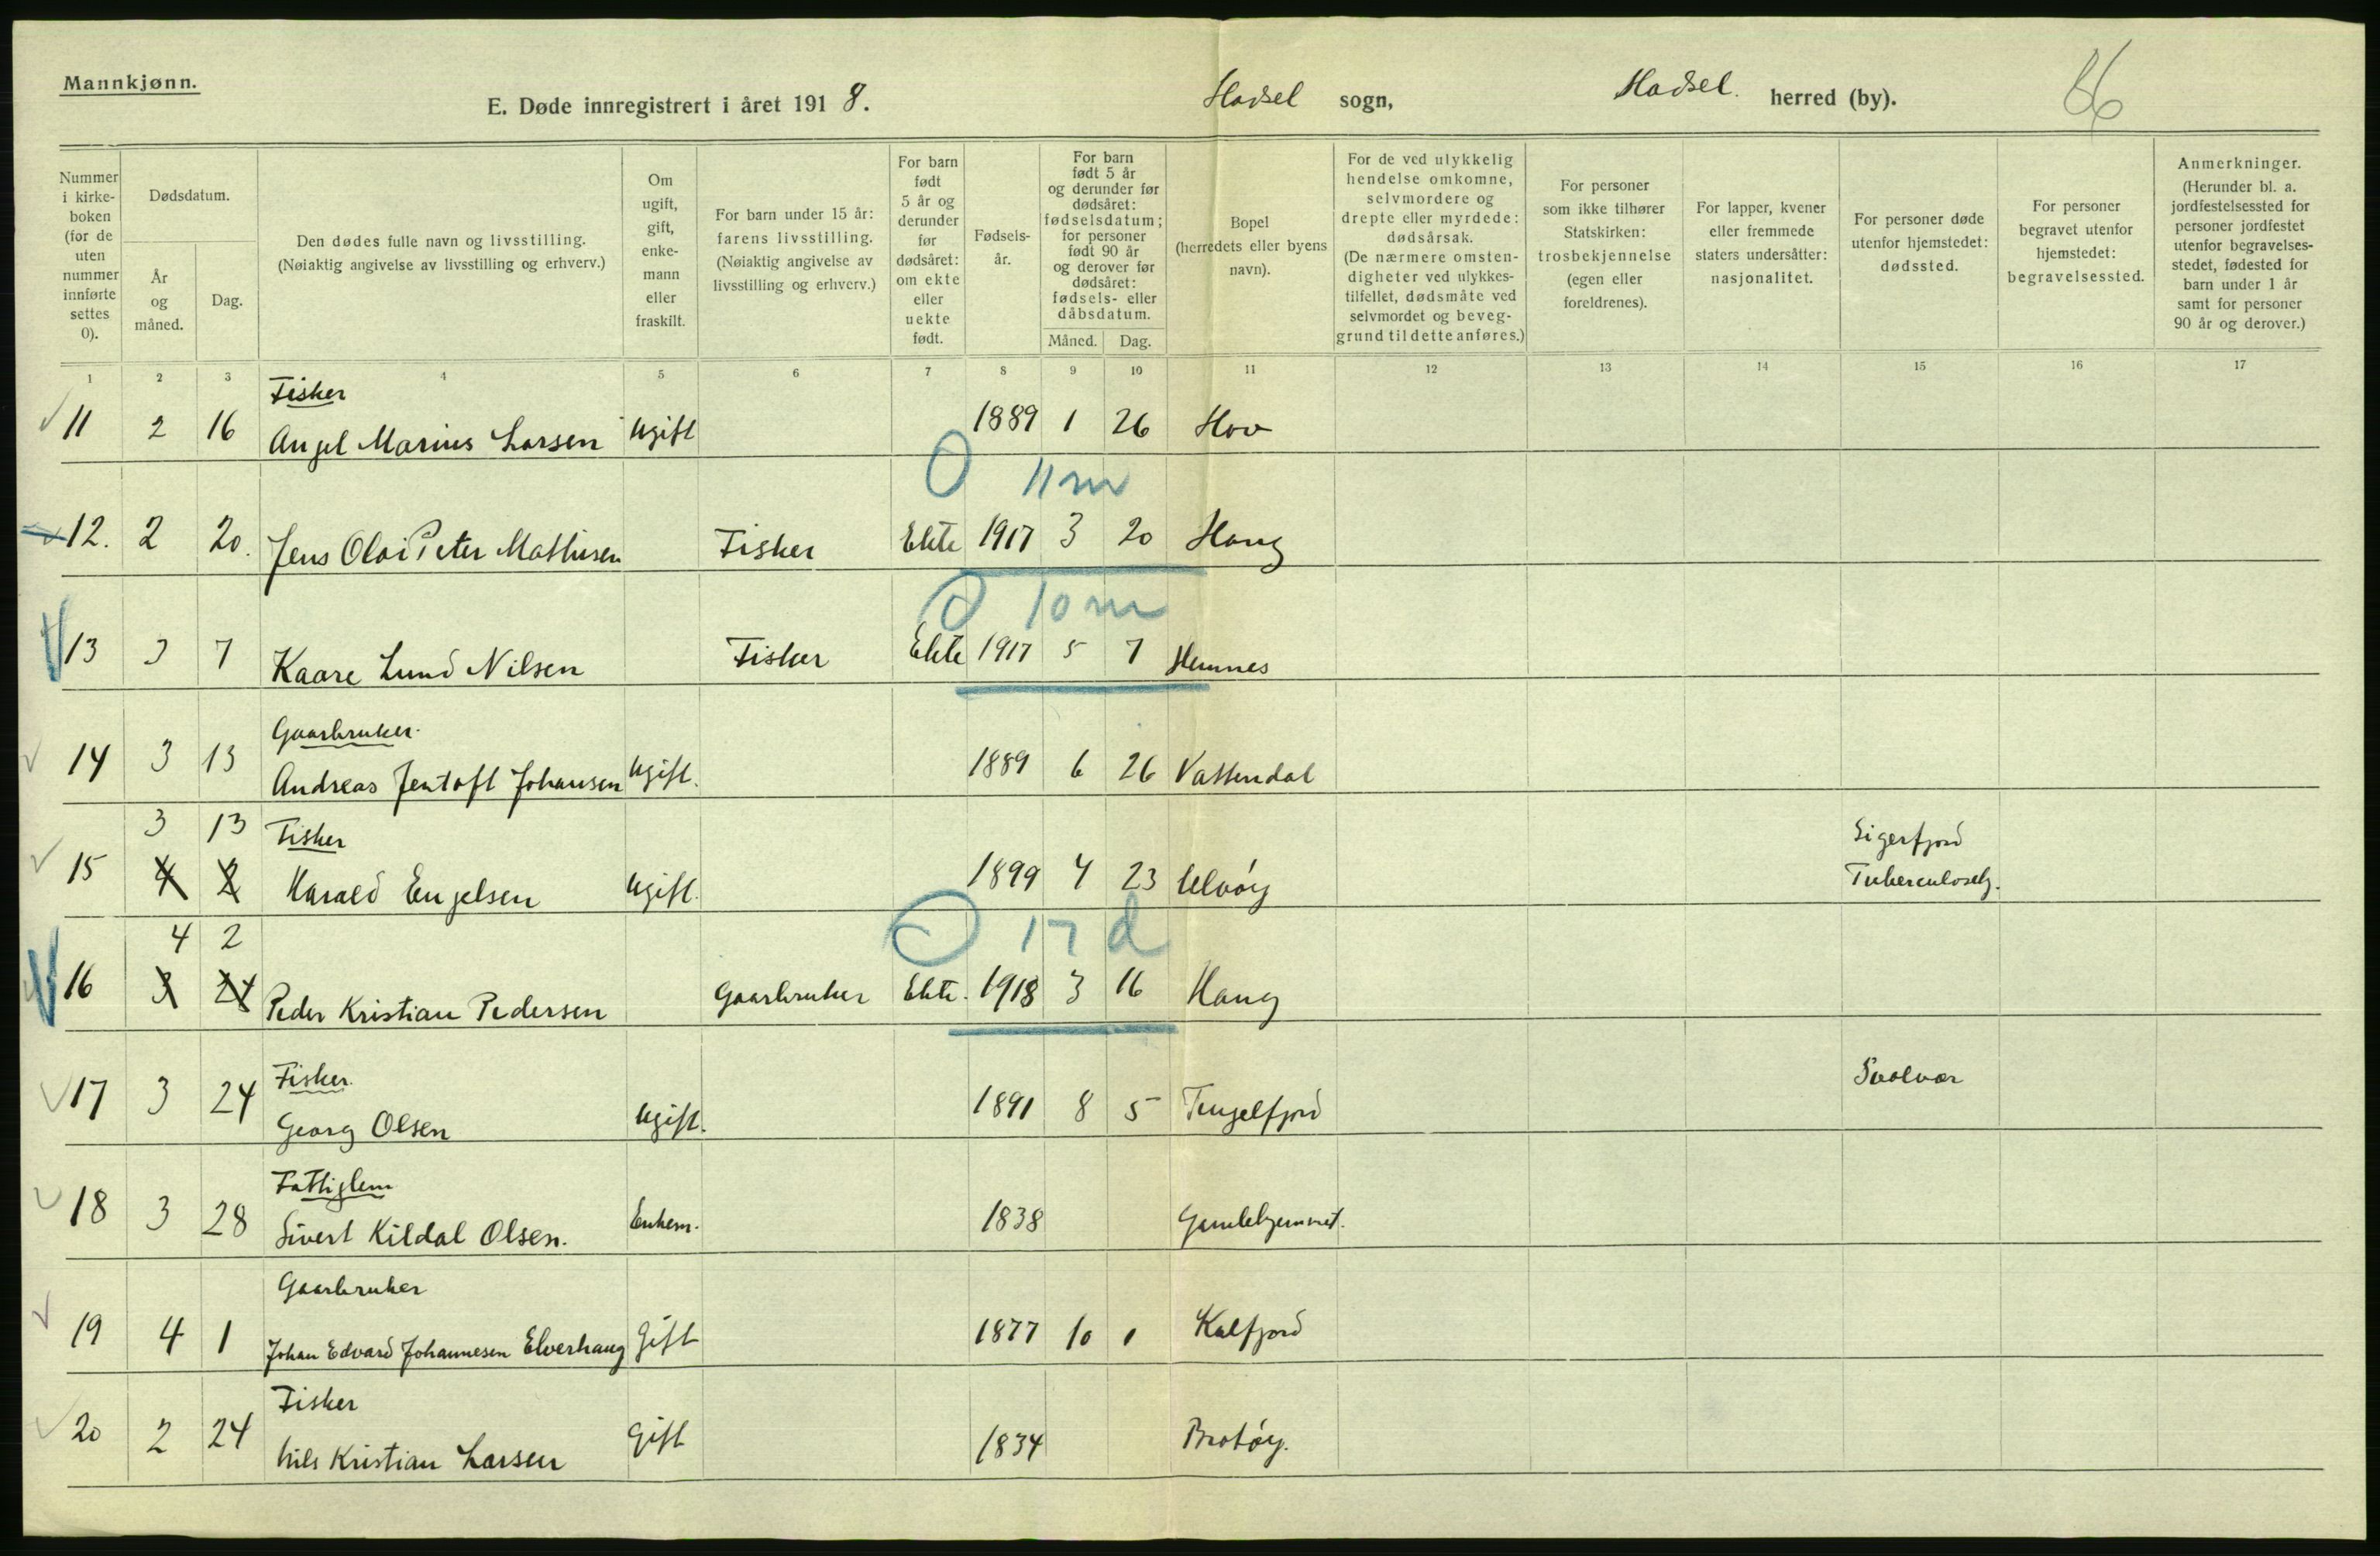 Mannkjønn.
E. Døde innregistrert i året 1918. Hadsel sogn, Hadsel. herred (by). 66
Nummer i kirkeboken (for de uten nummer innførte settes 0).
Dødsdatum.
År og måned.
Dag.
Den dødes fulle navn og livsstilling.
(Nøiaktig angivelse av livsstilling og erhverv.)
Om ugift, gift, enkemann eller fraskilt.
For barn under 15 år: farens livsstilling.
(Nøiaktig angivelse av livsstilling og erhverv.)
For barn født 5 år og derunder før dødsåret: om ekte eller uekte født.
Fødselsår.
For barn født 5 år og derunder før dødsåret: fødselsdatum; for personer født 90 år og derover før dødsåret: fødsels- eller dåbsdatum.
Måned. Dag.
Bopel (herredets eller byens navn).
For de ved ulykkelig hendelse omkomne, selvmordere og drepte eller myrdede: dødsårsak.
(De nærmere omstendigheter ved ulykkestilfellet, dødsmåte ved selvmordet og beveggrund til dette anføres.)
For personer som ikke tilhører Statskirken: trosbekjennelse (egen eller foreldrenes).
For lapper, kvener eller fremmede staters undersåtter: nasjonalitet.
For personer døde utenfor hjemstedet: dødssted.
For personer begravet utenfor hjemstedet: begravelsessted.
Anmerkninger.
(Herunder bl. a. jordfestelsessted for personer jordfestet utenfor begravelsesstedet, fødested for barn under 1 år samt for personer 90 år og derover.)
1 2 3 4 5 6 7 8 9 10 11 12 13 14 15 16 17
Fisker
11 2 16 Angel Marius Larsen Ugift 1889 1 26 Hov
0 11 m
12. 2 20. Jens Olai Peter Mathisen Fisker Ekte 1917 3 20 Haug
0 10 m
13 3 7 Kaare Lund Nilsen Fisker Ekte 1917 5 7 Hemnes
Gaarbruker.
14 3 13 Andreas Jentoft Johansen Ugift. 1889 6 26 Vattendal
3 13 Fisker Sigerfjord
15 4 2 Harald Engelsen Ugift. 1899 4 23 Ulvøy Tuberculoseh.
4 2 0 17 d
16 3 24 Peder Kristian Pedersen Gaarbruker Ekte. 1918 3 16 Haug
Fisker. Svolvær
17 3 24 Georg Olsen Ugift. 1891 8 5 Tengelfjord
Fattiglem
18 3 28 Sivert Kildal Olsen. Enkem. 1838 Gamlehjemmet.
Gaarbruker
19 4 1 Johan Edvard Johannesen Elverhaug Gift 1877 10 1 Kalfjord
Fisker
20 2 24 Nils Kristian Larsen Gift 1834 Brotøy.